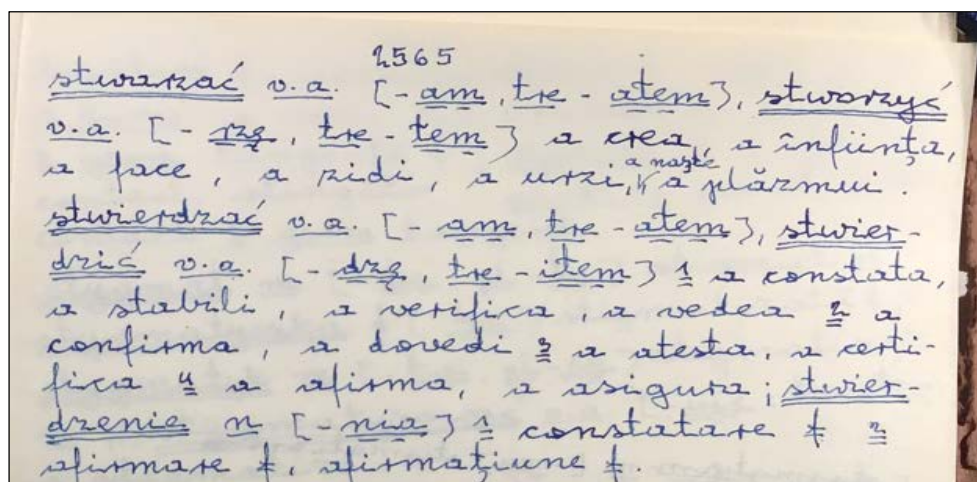 2565
stwarzać v.a. [-am, tre-atem], stworzyć
v.a. [-rzę, tre-tem] a crea, a înființa,
a face, a zidi, a urzi, a naște, a plăzmui.
stwierdzać v.a. [-am, tre-atem], stwier-
dzić v.a. [-dzę, tre-item] 1 a constata,
a stabili, a verifica, a vedea 2 a
confirma, a dovedi 3 a atesta, a certi-
fica 4 a afirma, a asigura; stwier-
dzenie n [-nia] 1 constatare f 2
afirmare f, afirmațiune f.